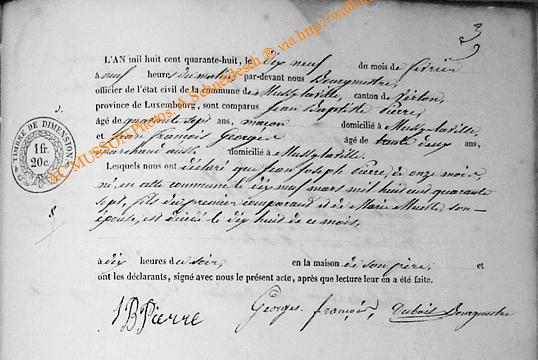 3
L'AN mil huit cent quarante-huit, le dix neuf du mois de février
à neuf heures du matin par-devant nous Bourgmestre,
officier de l'état civil de la commune de Mussy-la-ville canton de Virton,
province de Luxembourg, sont comparus Jean Baptiste Pierre,
âgé de quarante sept ans, maçon domicilié à Mussy-la-ville
et François Georges âgé de trente deux ans,
marchand aussi domicilié à Mussy-la-ville.
Lesquels nous ont déclaré que Jean Joseph Pierre, de onze mois
né, en cette commune le dix neuf mars mil huit cent quarante
sept, fils du premier comparant et de Marie son
épouse, est décédé le dix huit de ce mois,
à dix heures du soir, en la maison de son père, et
ont les déclarants, signé avec nous le présent acte, après que lecture leur en a été faite.
JB Pierre Georges françois Dubois Bourgmestre
TIMBRE DE DIMENSION
1 fr.
20 c.
MUSSON Photos A. Schneidesch ® via http://wallo